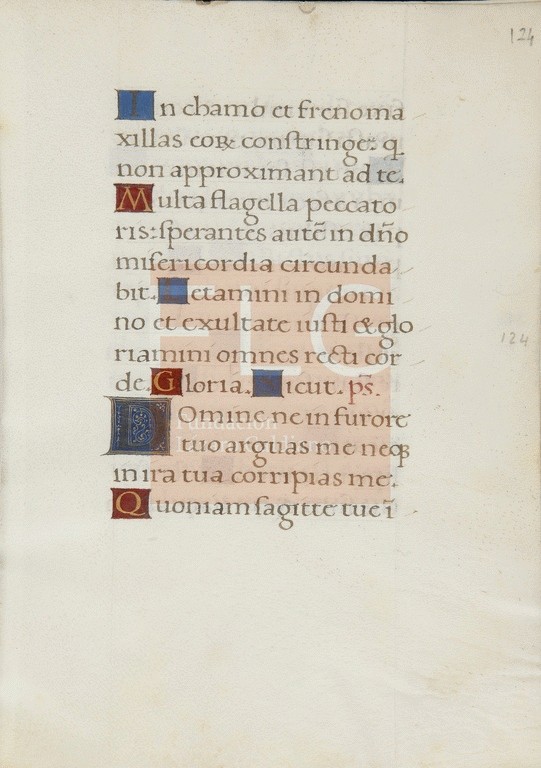 124
In chamo et freno ma
xillas eoꝝ constringe: q̃
non approximant ad te.
Multa flagella peccato
ris: sperantes autē in dño
misericordia circunda
bit. Letamini in domi
no et exultate iusti & glo
riamini omnes recti cor
de. Gloria. Sicut. ps̄.
Domine ne in furore
tuo arguas me neqꝫ
in ira tua corripias me.
Quoniam sagitte tue ī
124
FLG
Fundación